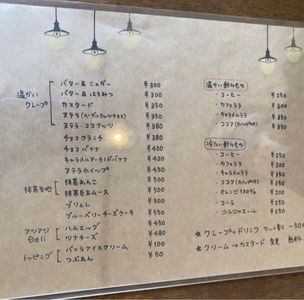 温かいクレープ
バター&シュガー ¥300
バター&はちみつ ¥300
カスタード ¥350
ヌテラ(ヘーゼルナッツチョコ) ¥350
ヌテラ・ココナッツ ¥380
チョコクランチ ¥380
チョコバナナ ¥420
キャラメルアーモンドバナナ ¥420
ヌテラホイップ ¥450
抹茶生地
抹茶あんこ ¥500
抹茶豆乳ムース ¥500
ブリュレ ¥500
ブルーベリーチーズケーキ ¥550
アツアツDeli
ハムエッグ ¥450
ツナチーズ ¥480
トッピング
バニラアイスクリーム ¥100
つぶあん ¥50
温かい飲みもの
・コーヒー ¥250
・カフェラテ
・キャラメルラテ
・ココア(ホイップ付き) ¥350
冷たい飲みもの
・コーヒー
・カフェラテ
・キャラメルラテ
・ココア(ホイップ付き) ¥350
・オレンジ100% ¥200
・コーラ ¥250
・ジンジャエール ¥250
★ クレープ+ドリンク セット割
★ クリーム→カスタード 変更